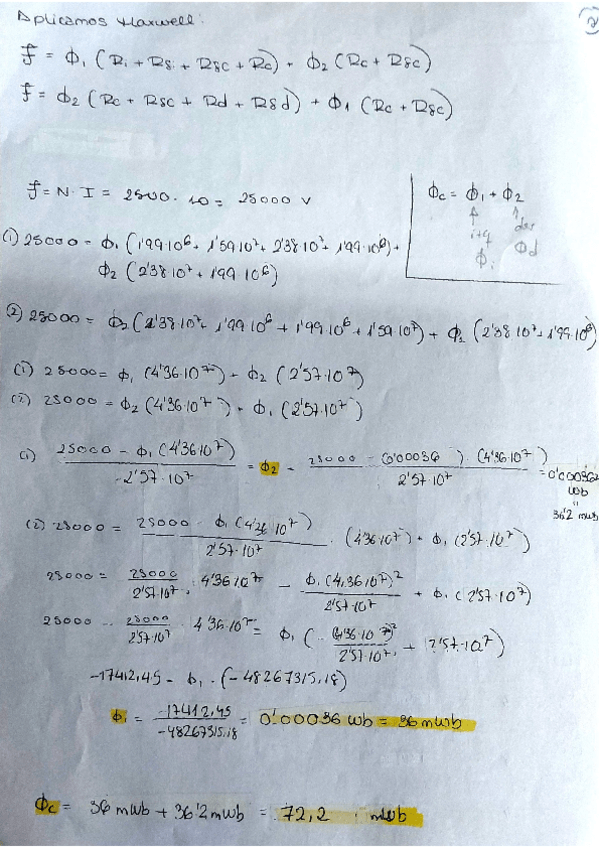 2
Aplicamos Maxwell:
F = Φ₁ (Ri + Rδi + Rδc + Rc) + Φ₂ (Rc + Rδc)
F = Φ₂ (Rc + Rδc + Rd + Rδd) + Φ₁ (Rc + Rδc)
F = N · I = 2500 · 10 = 25000 V
Φc = Φ₁ + Φ₂
izq der
Φi Φd
(1) 25000 = Φ₁ (1'99·10⁶ + 1'59·10⁷ + 2'38·10⁷ + 1'99·10⁶) +
Φ₂ (2'38·10⁷ + 1'99·10⁶)
(2) 25000 = Φ₂ (2'38·10⁷ + 1'99·10⁶ + 1'99·10⁶ + 1'59·10⁷) + Φ₁ (2'38·10⁷ + 1'99·10⁶)
(1) 25000 = Φ₁ (4'36·10⁷) + Φ₂ (2'57·10⁷)
(2) 25000 = Φ₂ (4'36·10⁷) + Φ₁ (2'57·10⁷)
(1) 25000 - Φ₁ (4'36·10⁷) / 2'57·10⁷ = Φ₂ = 25000 - (0'00036) · (4'36·10⁷) / 2'57·10⁷ = 0'000362
wb
=
36'2 mwb
(2) 25000 = 25000 - Φ₁ (4'36·10⁷) / 2'57·10⁷ · (4'36·10⁷) + Φ₁ (2'57·10⁷)
25000 = 25000 / 2'57·10⁷ · 4'36·10⁷ - Φ₁ (4,36·10⁷)² / 2'57·10⁷ + Φ₁ (2'57·10⁷)
25000 - 25000 / 2'57·10⁷ · 4'36·10⁷ = Φ₁ (- (4'36·10⁷)² / 2'57·10⁷ + 2'57·10⁷)
-17412,45 = Φ₁ · (-48267315,18)
Φ₁ = -17412,45 / -48267315,18 = 0'00036 wb = 36 mwb
Φc = 36 mwb + 36'2 mwb = 72,2 mwb